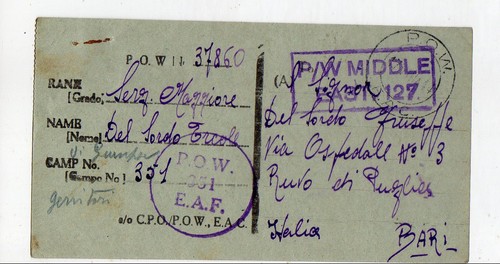 P.O.W II 37860
RANK Serg. Maggiore
[Grado]
NAME Del Sordo Ercole
[Nome]
CAMP No. 351
[Campo No.]
genitori
c/o C.P.O./P.O.W., E.A.C.
P.O.W.
351
E.A.F.
P.O.W.
P/W MIDDLE
EAST 127
(A) Signor
Del Sordo Giuseffe
Via Ospedale N° 3
Ruvo di Puglia
Italia BARI